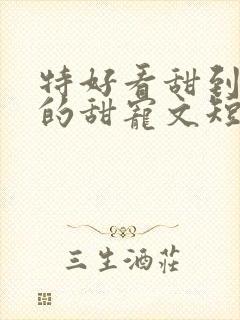 特好看甜到
的甜宠文短
三生酒莊